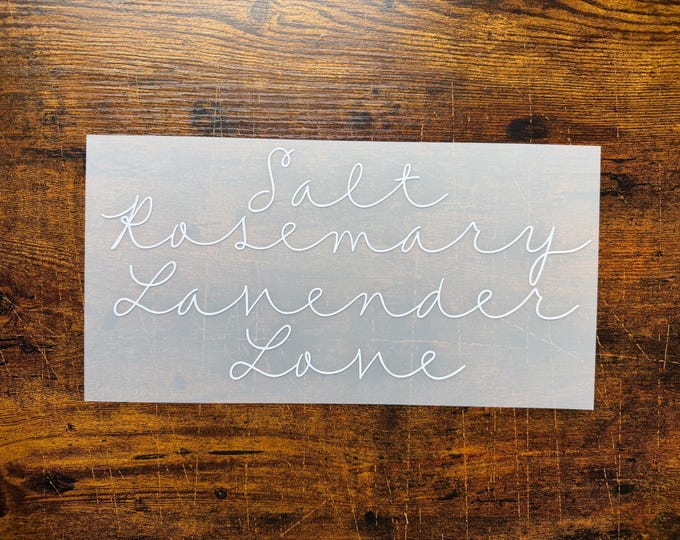 Salt
Rosemary
Lavender
Love